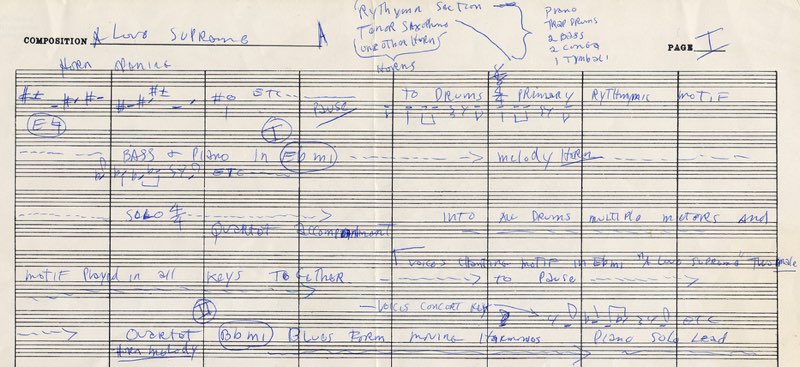 Rythymn Section
Tenor Saxophone
1 other Horns
Horns
Piano
Trap Drums
2 Bass
2 Conga
1 Tymbali
COMPOSITION A Love Supreme A
PAGE I
Horn
ETC
Pause
TO DRUMS 4/4 PRIMARY RYTHYMIC MOTIF
I
BASS & Piano in Ebmi
melody Horn
ETC
SOLO 4/4
Quartet Accompaniment
INTO ALL DRUMS MULTIPLE METERS And
Voices Chanting motif in Ebmi "A Love Supreme"
motif Played in all KEYS TOGETHER
to Pause
VOICES CONCERT KEY
ETC
II
Quartet Bbmi Blues Form moving Harmonies Piano Solo Lead
Horn melody